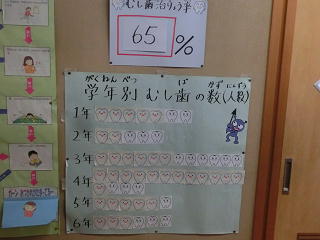 むし歯治りょう率
65%
がくねんべつ ば かず にんずう
学年別 むし歯の数(人数)
1年
2年
3年
4年
5年
6年